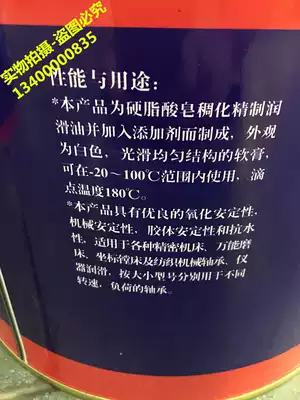 实物拍摄-盗图必究
13400000835
性能与用途:
*本产品为硬脂酸皂稠化精制润
滑油并加入添加剂而制成，外观
为白色，光滑均匀结构的软膏，
可在-20~100℃范围内使用，滴
点温度180℃。
*本产品具有优良的氧化安定性，
机械安定性，胶体安定性和抗水
性，适用于各种精密机床、万能磨
床、坐标镗床及纺织机械轴承、仪
器润滑，按大小型号分别用于不同
转速，负荷的轴承。